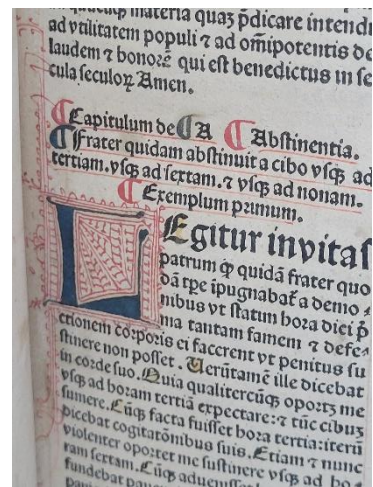 materia quaʒ p̄dicare intend
ad vtilitatem populi ⁊ ad om̄ipotentis de
laudem ⁊ honorē qui est benedictus in se
cula seculoꝝ Amen.
Capitulum de A Abstinentia.
Frater quidam abstinuit a cibo vsqꝫ ad
tertiam. vsqꝫ ad sextam. ⁊ vsqꝫ ad nonam.
Exemplum primum.
LEgitur in vitas
patrum ꝙ quidā frater quo
dā tꝑe ipugnabat᷑ a demo⸗
nibus vt statim hora diei p̄
ma tantam famem ⁊ defe⸗
ctionem corporis ei facerent vt penitus su
stinere non posset. Verūtamē ille dicebat
in corde suo. Quia qualitercūqꝫ oportꝫ me
vsqꝫ ad horam tertiā expectare: ⁊ tūc cibuʒ
sumere. Cūqꝫ facta fuisset hora tertia: iterū
dicebat cogitatōnibus suis. Etiam ⁊ nunc
violenter oportet me sustinere vsqꝫ ad ho⸗
ram sextam. Cūqꝫ
fundebat